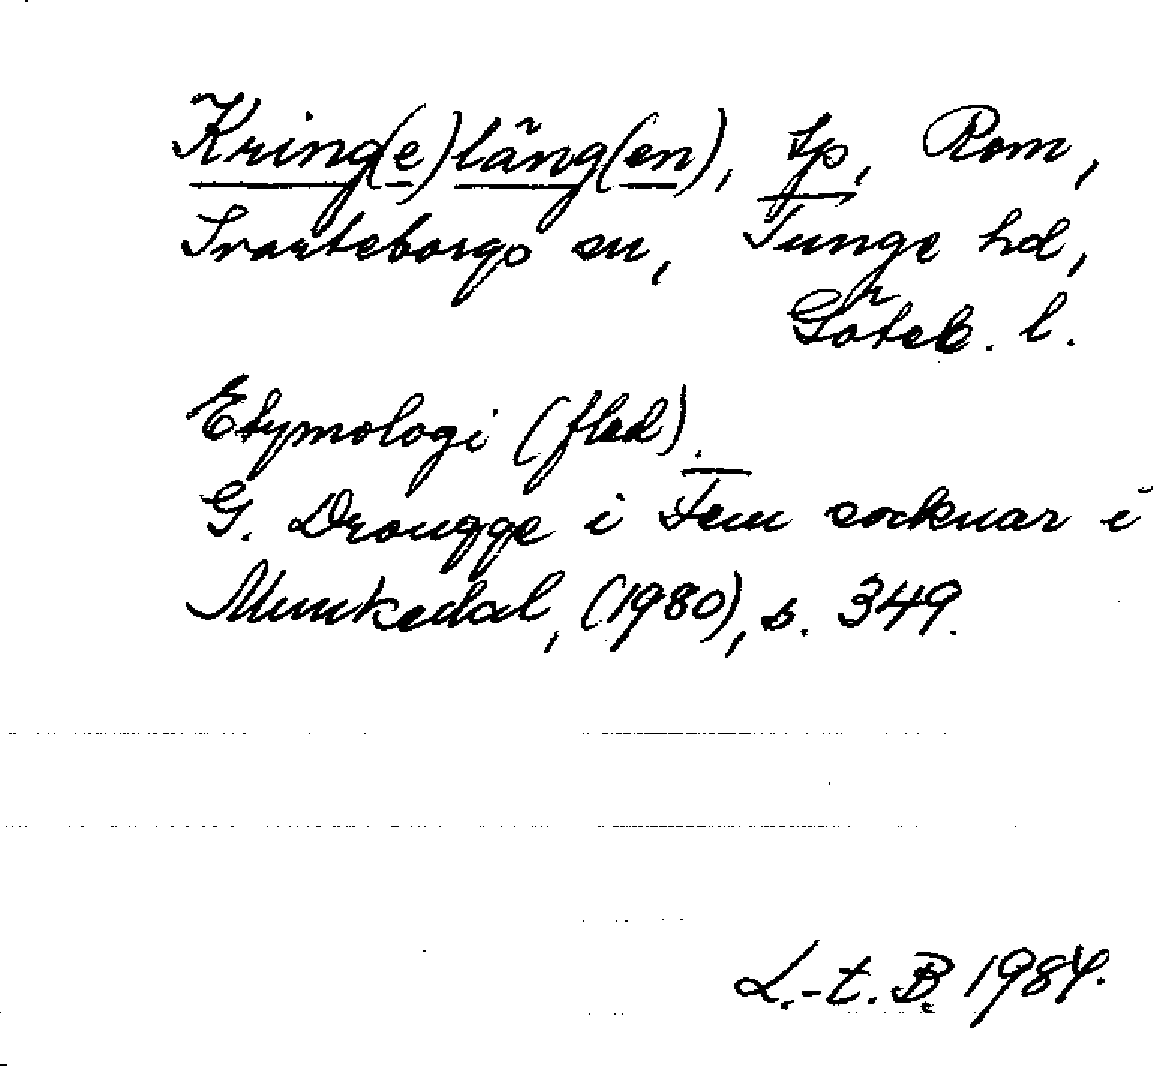 Kring(e)läng(en), tp, Rom,
Svarteborgs sn, Tunge hd,
Göteb. l.
Etymologi (fled).
G. Drougge i Fem socknar i
Munkedal, (1980), s. 349.
L.-t. B. 1984.